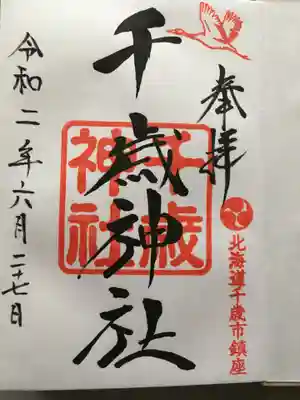 奉拝
北海道千歳市鎮座
千歳神社
千歳神社
令和二年六月二十七日